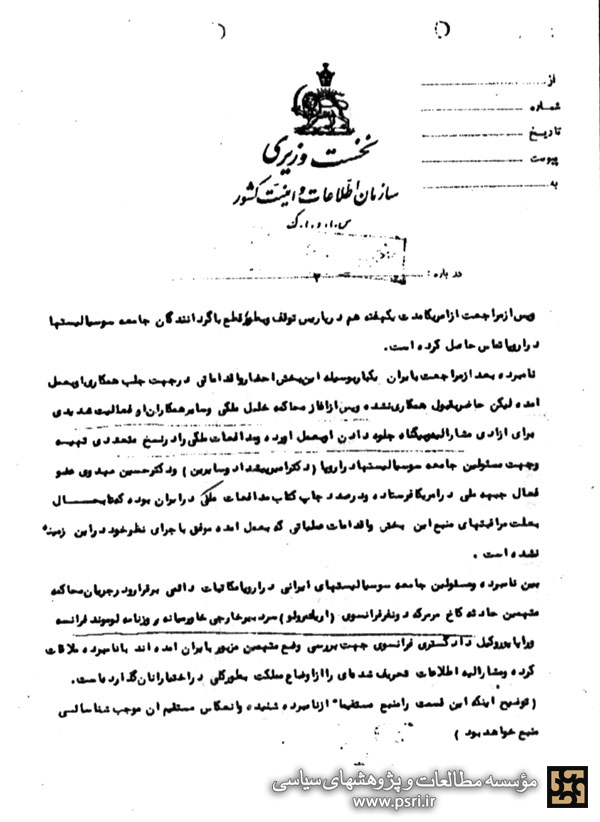 از
شماره
تاریخ
پیوست
به
نخست وزیری
سازمان اطلاعات و امنیت کشور
س.ا.و.ا.ک
درباره :
وپس از مراجعت از امریکا مدت یکهفته هم در پاریس توقف وبطور قطع با گردانندگان جامعه سوسیالیستها
در اروپا تماس حاصل کرده است.
نامبرده بعد از مراجعت بایران یکبار بوسیله این بخش احضار واقداماتی در جهت جلب همکاری او بعمل
امده لیکن حاضر بقبول همکاری نشده وپس از اغاز محاکمه خلیل ملکی وسایر همکاران او فعالیت شدیدی
برای ازادی مشارالیه وبیگناه جلوه دادن او بعمل اورده ومدافعات ملکی را در نسخ متعددی تهیه
وجهت مسئولین جامعه سوسیالیستها در اروپا ( دکتر امیر پیشداد وسایرین ) ودکتر حسین مهدوی عضو
فعال جبهه ملی در امریکا فرستاده ودر صدد چاپ کتاب مدافعات ملکی در ایران بوده که تا بحال
بعلت مراقبتهای منبع این بخش واقدامات عملیاتی که بعمل امده موفق با جرای نظر خود در این زمینه
نشده است .
بین نامبرده ومسئولین جامعه سوسیالیستهای ایرانی در اروپا مکاتبات دائمی برقرار ودر جریان محاکمه
متهمین حادثه کاخ مرمر که دو نفر فرانسوی ( اریک رولو ) سردبیر خارجی خاورمیانه روزنامه لوموند فرانسه
ورابا یوروکیل دادگستری فرانسوی جهت بررسی وضع متهمین مزبور بایران امده اند با نامبرده ملاقات
کرده ومشارالیه اطلاعات تحریف شده ای را از اوضاع مملکت بطور کلی در اختیار انان گذارده است.
( توضیح اینکه این قسمت را منبع مستقیما" از نامبرده شنیده وانعکاس مستقیم ان موجب شناسائی
منبع خواهد بود )
مؤسسه مطالعات و پژوهشهای سیاسی
www.psri.ir